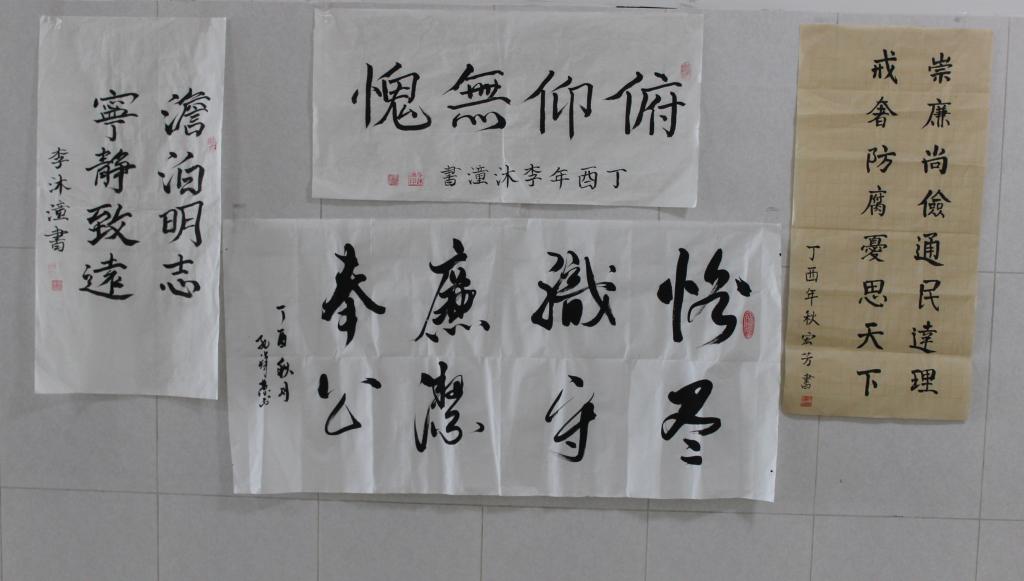 澹泊明志
寧静致遠
李沐潼書
俯仰無愧
丁酉年李沐潼書
恪尽
職守
廉潔
奉公
丁酉秋月
崇廉尚儉通民達理
戒奢防腐憂思天下
丁酉年秋宏芳書